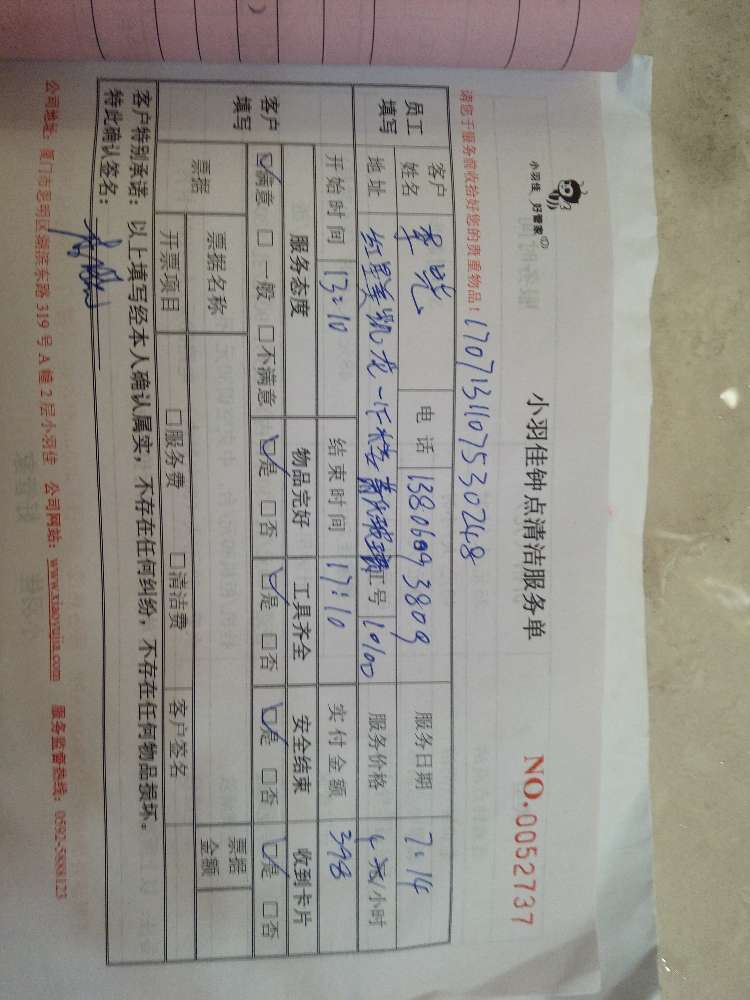 小羽佳 好管家
小羽佳钟点清洁服务单
NO.0052737
请您于服务前收拾好您的贵重物品！
1707131107530248
员工填写
客户姓名
电话 13806093809
服务日期 7.14
地址 红星美凯龙一仟栋
工号 10100
服务价格 元/小时
开始时间 13:10
结束时间 17:10
实付金额 398
客户填写
服务态度 物品完好 工具齐全 安全结束 收到卡片
☑满意 □一般 □不满意 ☑是 □否 ☑是 □否 ☑是 □否 ☑是 □否
票据
票据名称
票据金额
开票项目 □服务费 □清洁费 客户签名
客户特别承诺：以上填写经本人确认属实，不存在任何纠纷，不存在任何物品损坏。
特此确认签名：
公司地址：厦门市思明区湖滨东路319号A幢2层小羽佳 公司网站：www.xiaoyujia.com 服务监督热线：0592-5888123